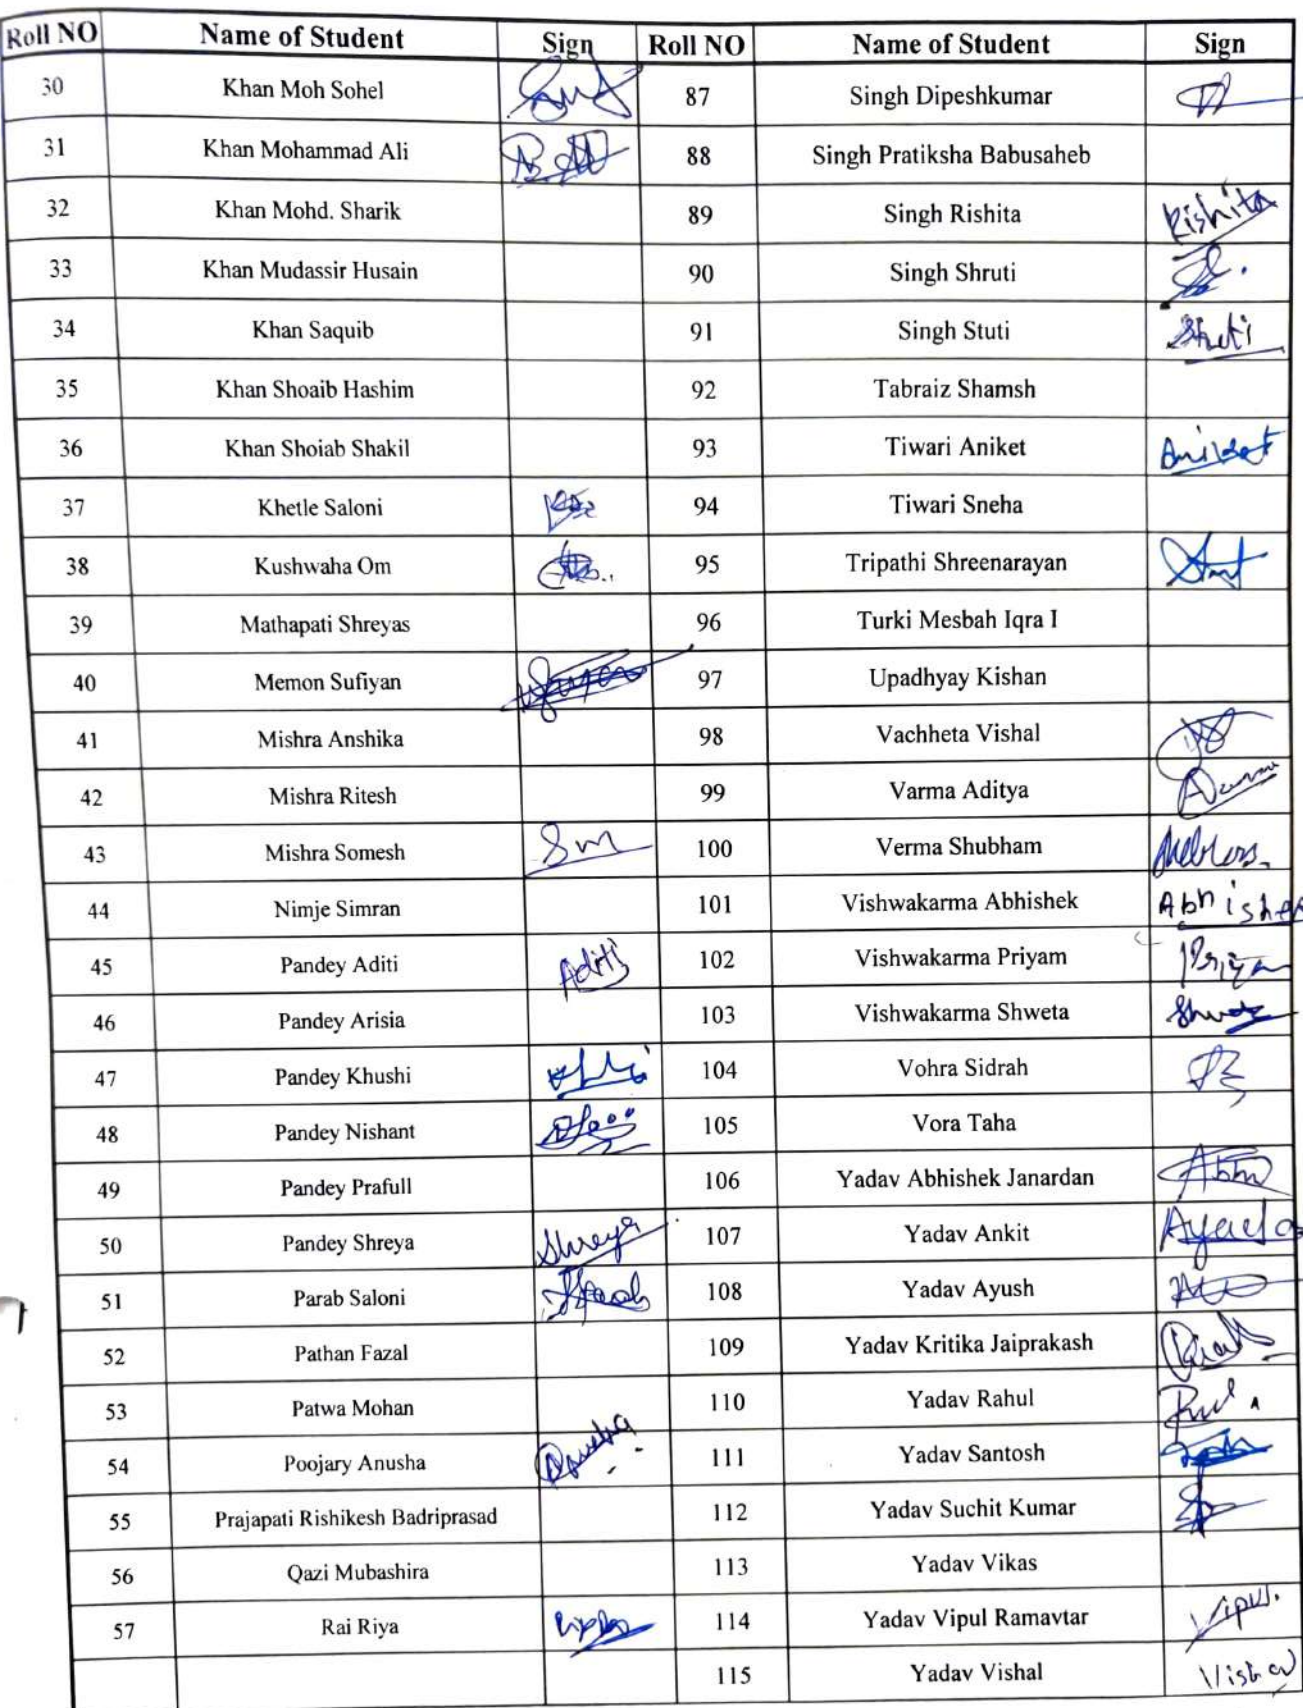 Roll NO Name of Student Sign Roll NO Name of Student Sign
30 Khan Moh Sohel 87 Singh Dipeshkumar
31 Khan Mohammad Ali 88 Singh Pratiksha Babusaheb
32 Khan Mohd. Sharik 89 Singh Rishita Rishita
33 Khan Mudassir Husain 90 Singh Shruti
34 Khan Saquib 91 Singh Stuti
35 Khan Shoaib Hashim 92 Tabraiz Shamsh
36 Khan Shoiab Shakil 93 Tiwari Aniket Aniket
37 Khetle Saloni 94 Tiwari Sneha
38 Kushwaha Om 95 Tripathi Shreenarayan
39 Mathapati Shreyas 96 Turki Mesbah Iqra I
40 Memon Sufiyan 97 Upadhyay Kishan
41 Mishra Anshika 98 Vachheta Vishal
42 Mishra Ritesh 99 Varma Aditya
43 Mishra Somesh Sm 100 Verma Shubham
44 Nimje Simran 101 Vishwakarma Abhishek
45 Pandey Aditi Aditi 102 Vishwakarma Priyam
46 Pandey Arisia 103 Vishwakarma Shweta
47 Pandey Khushi 104 Vohra Sidrah
48 Pandey Nishant 105 Vora Taha
49 Pandey Prafull 106 Yadav Abhishek Janardan
50 Pandey Shreya Shreya 107 Yadav Ankit
51 Parab Saloni 108 Yadav Ayush
52 Pathan Fazal 109 Yadav Kritika Jaiprakash
53 Patwa Mohan 110 Yadav Rahul
54 Poojary Anusha 111 Yadav Santosh
55 Prajapati Rishikesh Badriprasad 112 Yadav Suchit Kumar
56 Qazi Mubashira 113 Yadav Vikas
57 Rai Riya 114 Yadav Vipul Ramavtar Vipul.
115 Yadav Vishal